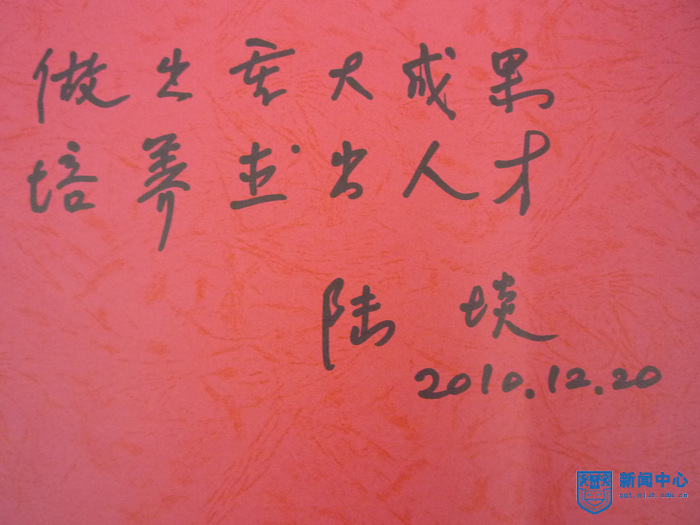 做出重大成果
培养杰出人才
陆埮
2010.12.20
新闻中心